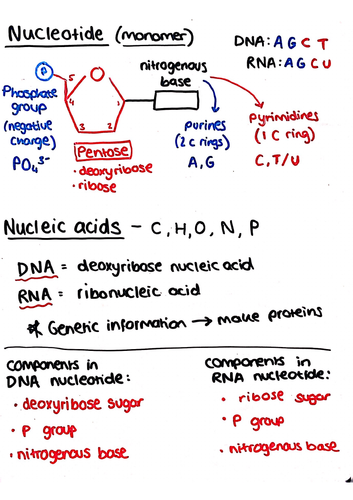 Nucleotide (monomer)
DNA: A G C T
RNA: A G C U
nitrogenous
base
P
5
4
3
2
1
Phosphate
group
(negative
charge)
PO₄³⁻
Pentose
• deoxyribose
• ribose
purines
(2 C rings)
A, G
pyrimidines
(1 C ring)
C, T/U
Nucleic acids - C, H, O, N, P
DNA = deoxyribose nucleic acid
RNA = ribonucleic acid
* Genetic information → make proteins
components in
DNA nucleotide:
• deoxyribose sugar
• P group
• nitrogenous base
components in
RNA nucleotide:
• ribose sugar
• P group
• nitrogenous base